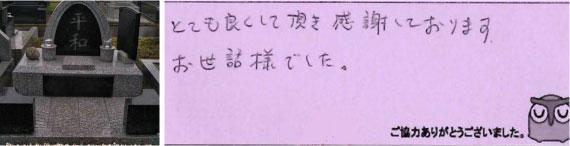 平和
とても良くして頂き感謝しております
お世話様でした。
ご協力ありがとうございました。